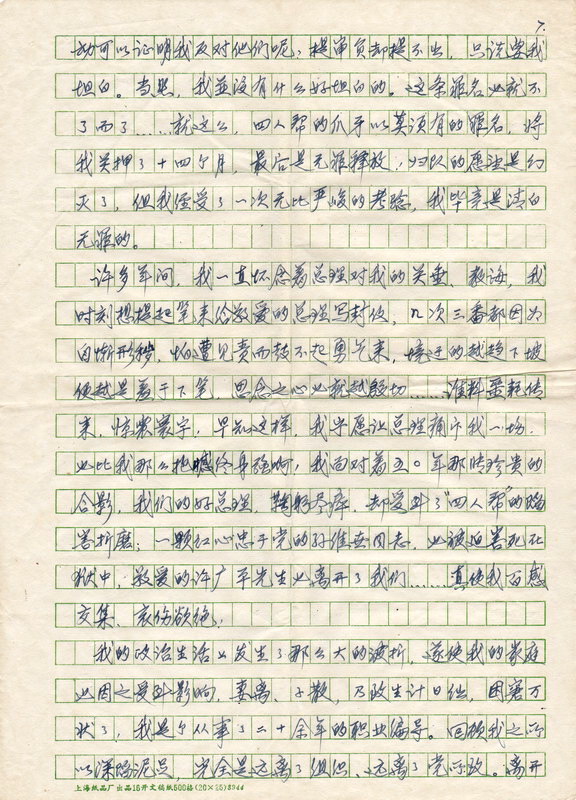 7.
动可以证明我反对他们呢；提审员却提不出，只说要我
坦白。当然，我並没有什么好坦白的。这条罪名也就不
了而了……就这么，四人帮的爪牙以莫须有的罪名，将
我关押了十四个月，最后是无罪释放！归队的愿望是幻
灭了，但我经受了一次无比严峻的考验，我毕竟是清白
无罪的。
许多年间，我一直怀念着总理对我的关垂、教诲，我
时刻想提起笔来给敬爱的总理写封信，几次三番都因为
自惭形秽，怕遭见责而鼓不起勇气来，境遇的越趋下坡
便越是羞于下笔，思念之心也就越殷切……谁料噩耗传
来，惊震寰宇，早知这样，我宁愿让总理痛斥我一场，
也比我那么抱憾终身强啊！我面对着五〇年那帧珍贵的
合影，我们的好总理，鞠躬尽瘁，却受到了"四人帮"的陷
害折磨；一颗红心忠于党的孙维世同志，也被迫害死在
狱中，敬爱的许广平先生也离开了我们……真使我百感
交集、哀伤欲绝。
我的政治生活上发生了那么大的波折，遂使我的家庭
也因之受到影响，妻离、子散，乃致生计日绌，困窘万
状了，我是个从事了二十余年的职业编导。回顾我之所
以深陷泥足，完全是远离了组织、远离了党所致。离开
上海纸品厂出品16开文稿纸500格(20×25)8344